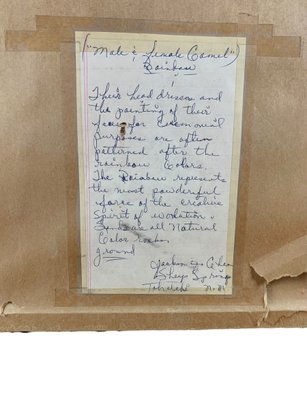 ("Male & female Camel")
Rainbow
Their head dresses and
the painting of their
faces for Ceremonial
purposes are often
patterned after the
rainbow Colors.
The Rainbow represents
the most powderful
force of the creative
Spirit of evolution.
Sands are all Natural
Color
ground
Sheep Springs